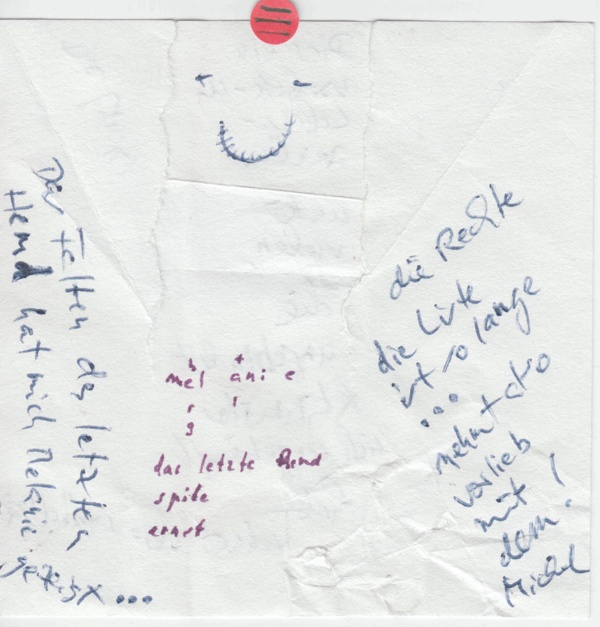 Das Falten des letzten
Hemd hat mich Melanie
...
mel anie
das letzte Hemd
spite
ernst
die Rechte
die Liste
ist so lange
...
nehmt also
vorlieb
mit
dem!
Michel